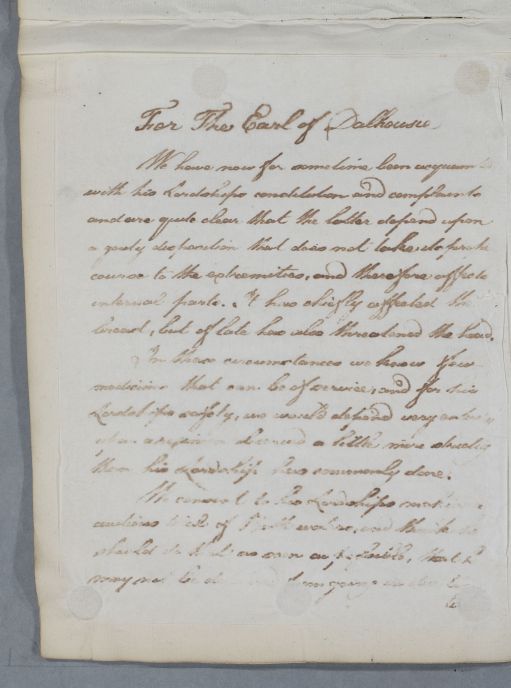 For The Earl of Dalhousie
We have now for sometime been acquainted
with his Lordships constitution and complaints
and are quite clear that the latter depend upon
a gouty disposition that does not take its proper
course to the extremities, and therefore affects
internal parts. It has chiefly affected the
breast, but of late has also threatened the head.
In these circumstances we know few
medicines that can be of service, and for his
Lordships safety, we would depend very
upon a regimen a little more strictly
than his Lordship has commonly done.
We to his Lordships making
trial of Bath waters, and think he
should do it as soon as possible, that he
may not be from going
to